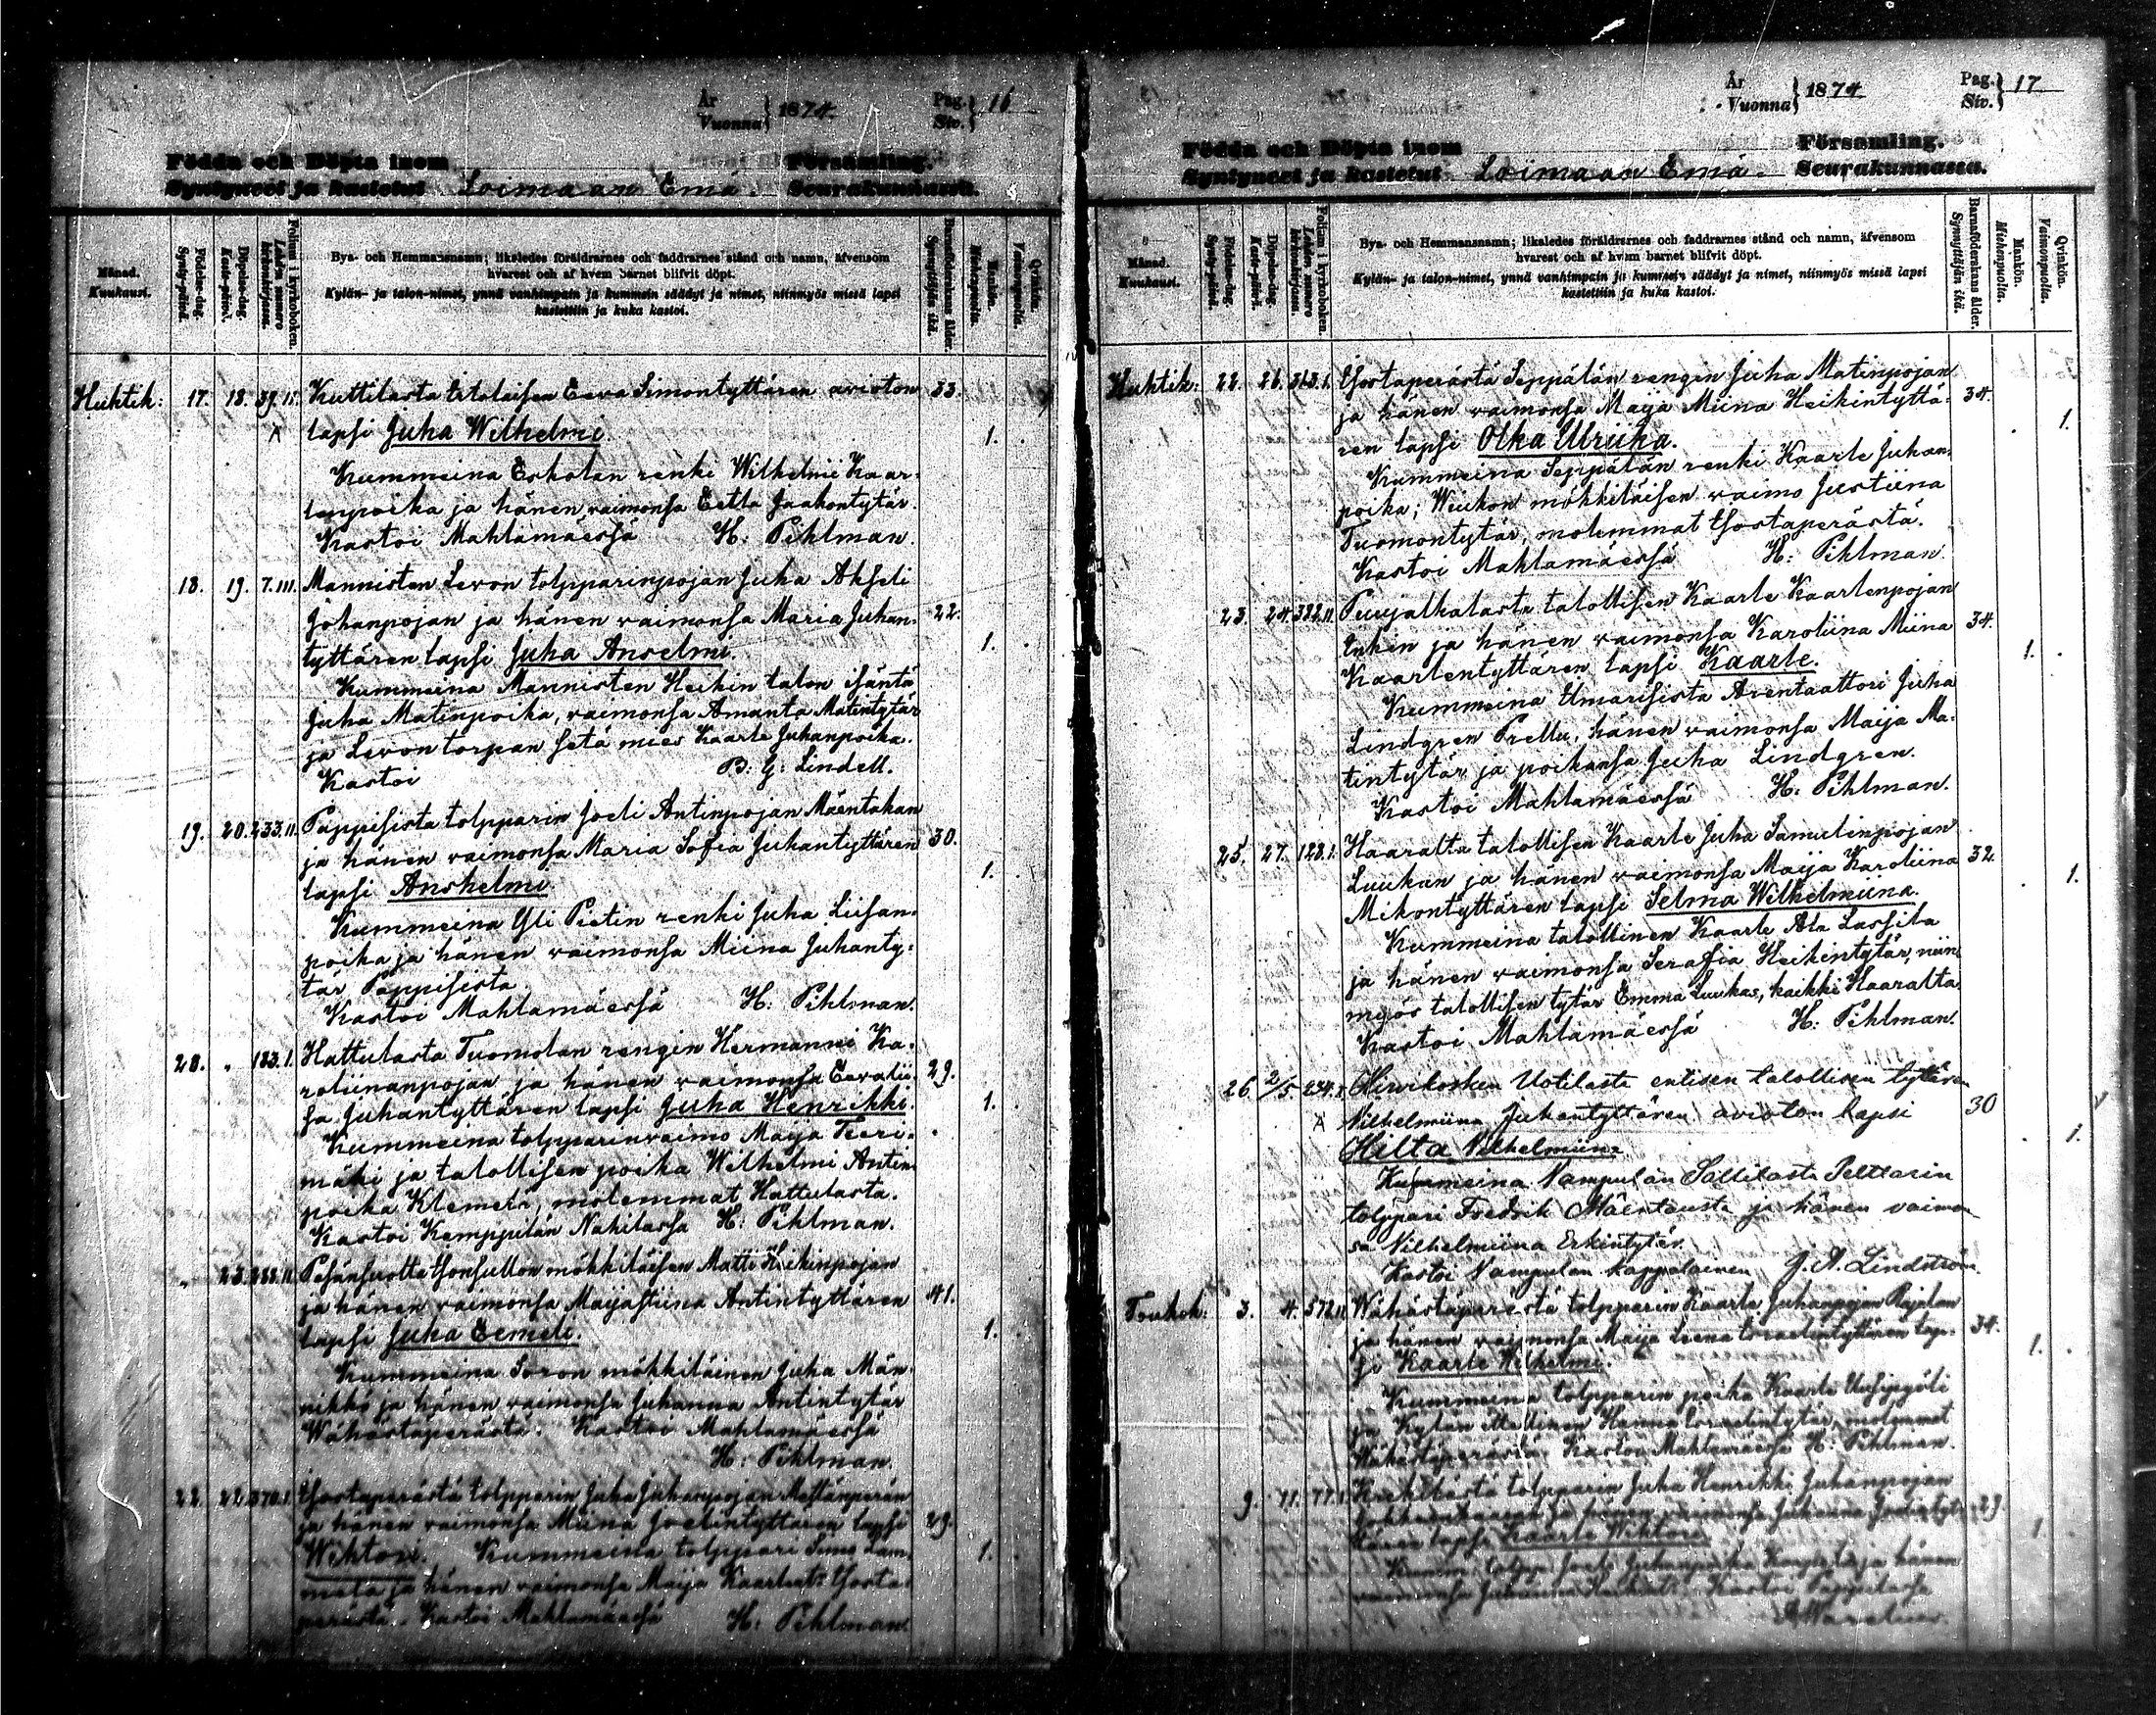 År
Vuonna } 1874.
Pag.
Siv. } 16
Födda och Döpta inom Församling.
Syntyneet ja kastetut Loimaan Emä. Seurakunnassa.
Månad.
Kuukausi.
Födelse-dag.
Synty-päivä.
Döpelse-dag.
Kaste-päivä.
Folium i kyrkoboken.
Lehden numero kirkonkirjassa.
Bya- och Hemmansnamn; likaledes föräldrarnes och faddrarnes stånd och namn, äfvensom
hvarest och af hvem barnet blifvit döpt.
Kylän- ja talon-nimet, ynnä vanhimpain ja kummein säädyt ja nimet, niinmyös missä lapsi
kastettiin ja kuka kastoi.
Barnaföderskans ålder.
Synnyttäjän ikä.
Mankön.
Miehenpuolta.
Qvinkön.
Vaimonpuolta.
Huhtik: 17. 18. 39. Kuttilasta Itsolaisen Eeva Simontyttären avioton 33.
lapsi Juha Wilhelmi. 1.
Kummeina Eskolan renki Wilhelmi Kaar-
lenpoika ja hänen vaimonsa Eetla Jaakontytär.
Kastoi Mahlamäessä H: Pihlman.
18. 19. 7.III. Mannisten Levon tolpparinpojan Juha Akseli
Johanpojan ja hänen vaimonsa Maria Juhan- 22.
tyttären lapsi Juha Anselmi. 1.
Kummeina Mannisten Heikin talon isäntä
Juha Matinpoika, vaimonsa Amanta Matintytär
ja Levon torpan setä mies Kaarle Juhanpoika.
Kastoi B: G: Lindell.
19. 20. 233.II. Pappisista tolpparin Joeli Antinpojan Mäentakan
ja hänen vaimonsa Maria Sofia Juhantyttären 30.
lapsi Anshelmi 1.
Kummeina Yli Pietin renki Juha Liisan-
poika ja hänen vaimonsa Miina Juhanty-
tär Pappisista.
Kastoi Mahlamäessä H: Pihlman.
20. " 183.I. Hattulasta Tuomolan rengin Hermanni Ka-
roliinanpojan ja hänen vaimonsa Eevalii- 29.
sa Juhantyttären lapsi Juha Henrikki. 1.
Kummeina tolpparinvaimo Maija Teeri-
mäki ja talollisen poika Wilhelmi Antin-
poika Klemetz, molemmat Hattulasta.
Kastoi Kemppilän Nahilassa H: Pihlman.
" 23. Matti Heikinpojan
ja hänen vaimonsa Maijastiina Antintyttären 41.
lapsi Juha Eemeli. 1.
Kummeina Soron mökkiläinen Juha Män-
nikkö ja hänen vaimonsa Juhanna Antintytär
Wähästäperästä. Kastoi Mahlamäessä
H: Pihlman.
22. 22. 370.I. tolpparin Juha Juhanpojan Mettänperän
ja hänen vaimonsa Miina Joelintyttären lapsi 29.
Wihtori. Kummeina tolppari 1.
ja hänen vaimonsa Maija
Kastoi Mahlamäessä H: Pihlman.
År
Vuonna } 1874
Pag.
Siv. } 17
Födda och Döpta inom Församling.
Syntyneet ja kastetut Loimaan Emä. Seurakunnassa.
Månad.
Kuukausi.
Födelse-dag.
Synty-päivä.
Döpelse-dag.
Kaste-päivä.
Folium i kyrkoboken.
Lehden numero kirkonkirjassa.
Bya- och Hemmansnamn; likaledes föräldrarnes och faddrarnes stånd och namn, äfvensom
hvarest och af hvem barnet blifvit döpt.
Kylän- ja talon-nimet, ynnä vanhimpain ja kummein säädyt ja nimet, niinmyös missä lapsi
kastettiin ja kuka kastoi.
Barnaföderskans ålder.
Synnyttäjän ikä.
Mankön.
Miehenpuolta.
Qvinkön.
Vaimonpuolta.
Huhtik: 22. 26. 363.I. Seppälän rengin Juha Matinpojan
ja hänen vaimonsa Maija Miina Heikintyttä- 34.
ren lapsi Olka Ulriika. 1.
Kummeina Seppälän renki Kaarle Juhan-
poika; Wiukon mökkiläisen vaimo Justiina
Tuomontytär, molemmat
Kastoi Mahlamäessä H: Pihlman.
23. 24. 382.II. Puujalkalasta talollisen Kaarle Kaarlenpojan
ja hänen vaimonsa Karoliina Miina 34.
Kaarlentyttären lapsi Kaarle. 1.
Kummeina Ilmarisista Arentaattori Juha
Lindgren Prellu, hänen vaimonsa Maija Ma-
tintytär ja poikansa Juha Lindgren.
Kastoi Mahlamäessä H: Pihlman.
25. 27. 128.I. Haaralta talollisen Kaarle Juha Samulinpojan
Luukan ja hänen vaimonsa Maija Karoliina 32.
Mikontyttären lapsi Selma Wilhelmiina. 1.
Kummeina talollinen Kaarle Ala Lassila
ja hänen vaimonsa Serafia Heikintytär, niin-
myös talollisen tytär Emma Luukas, kaikki Haaralta.
Kastoi Mahlamäessä H: Pihlman.
26 2/5 234.I. Hirvikosken Uotilasta entisen talollisen tytären
Vilhelmiina Juhantyttären avioton lapsi 30
Hilta Vilhelmiina. 1.
Kummeina Vampulan Sallilasta Peltarin
tolppari Fredrik Mäentausta ja hänen vaimon-
sa Vilhelmiina Erkintytär.
Kastoi Vampulan kappalainen J. A. Lindström.
Toukok: 3. 4. 372.II. Wähästäperästä tolpparin Kaarle Juhanpojan Rajalan
ja hänen vaimonsa Maija Leena Israelintyttären lap- 34.
si Kaarle Wilhelmi. 1.
Kummeina tolpparin poika Kaarle
ja Kylän itsellinen Hanna Israelintytär, molemmat
Wähästäperästä. Kastoi Mahlamäessä H: Pihlman.
9. 11. 77.I. tolpparin Juha Henrikki Juhanpojan
ja hänen vaimonsa Juhanna 29.
lapsi Kaarle Wihtori. 1.
Juhanpoika ja hänen
vaimonsa Kastoi